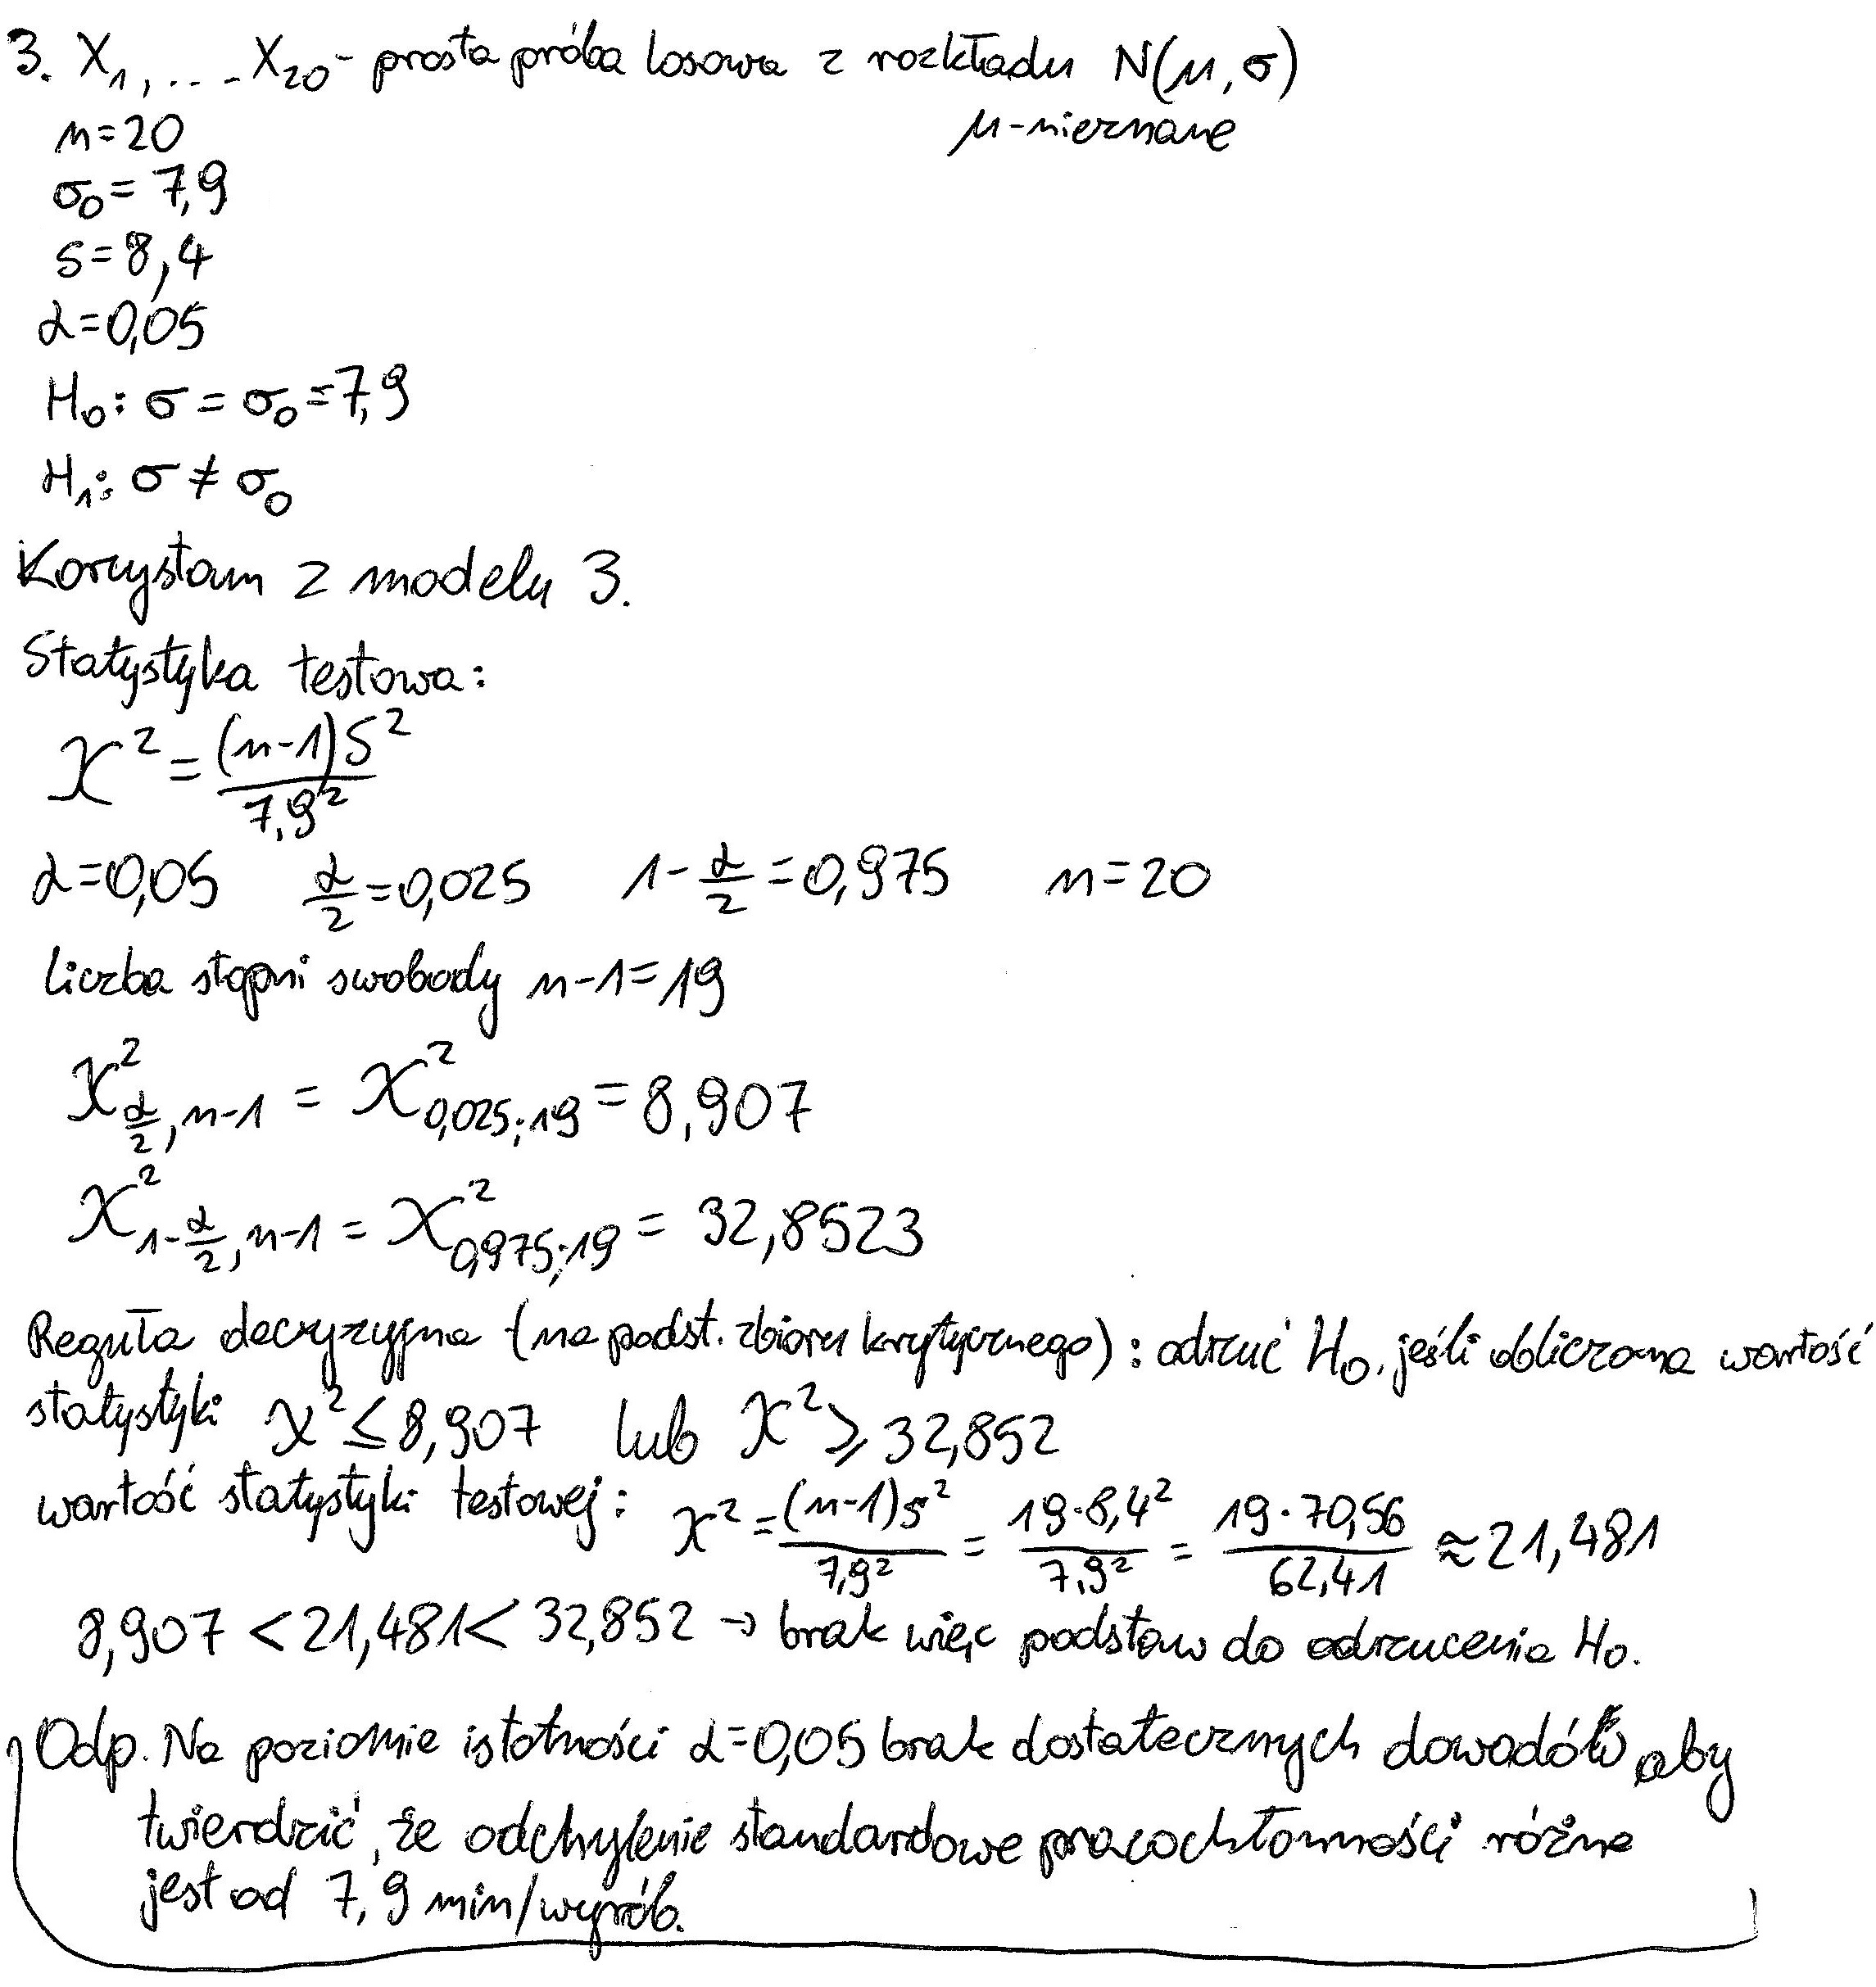 3. X₁, ... X₂₀ - prosta próba losowa z rozkładu N(μ, σ)
μ - nieznane
n = 20
σ₀ = 7,9
s = 8,4
α = 0,05
H₀: σ = σ₀ = 7,9
H₁: σ ≠ σ₀
Korzystam z modelu 3.
Statystyka testowa:
χ² = (n-1)S² / 7,9²
α = 0,05 α/2 = 0,025 1 - α/2 = 0,975 n = 20
liczba stopni swobody n-1 = 19
χ²_{α/2, n-1} = χ²_{0,025; 19} = 8,907
χ²_{1-α/2, n-1} = χ²_{0,975; 19} = 32,8523
Reguła decyzyjna (na podst. zbioru krytycznego): odrzuć H₀, jeśli obliczona wartość
statystyki χ² ≤ 8,907 lub χ² ≥ 32,852
wartość statystyki testowej: χ² = (n-1)s² / 7,9² = 19·8,4² / 7,9² = 19·70,56 / 62,41 ≈ 21,481
8,907 < 21,481 < 32,852 → brak więc podstaw do odrzucenia H₀.
Odp. Na poziomie istotności α = 0,05 brak dostatecznych dowodów, aby
twierdzić, że odchylenie standardowe pracochłonności różne
jest od 7,9 min/wyrób.